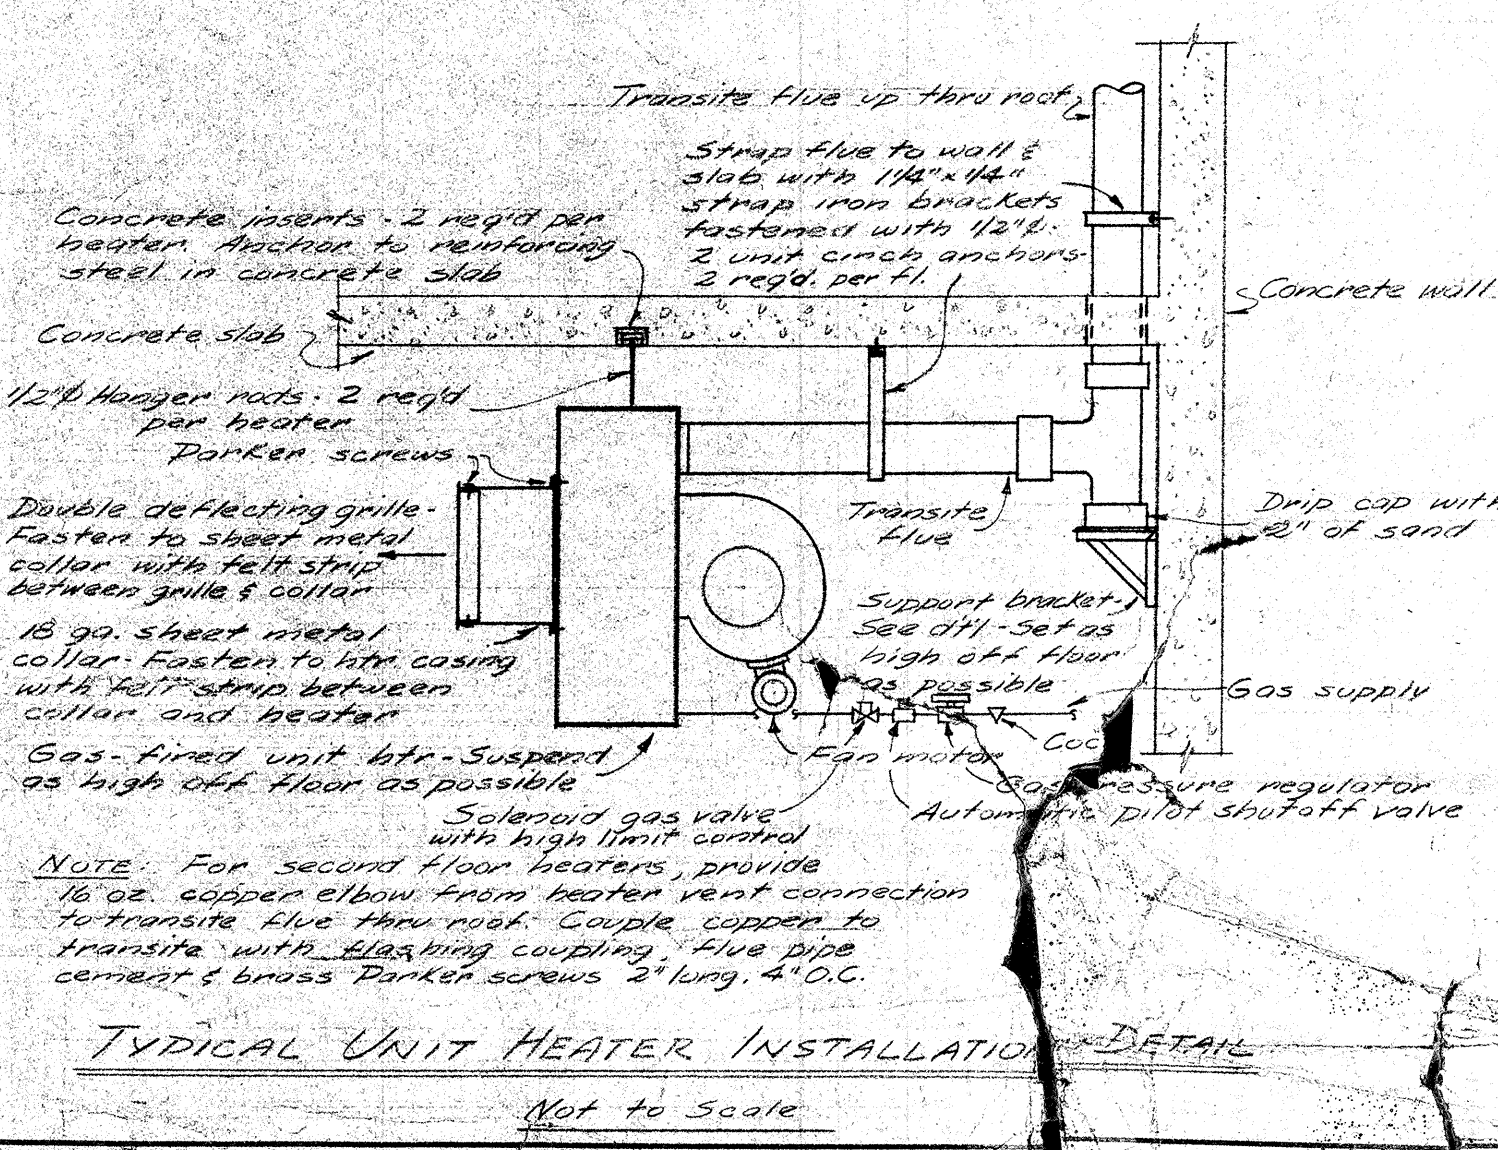 Transite flue up thru roof
Strap flue to wall &
slab with 1 1/4" x 1/4"
strap iron brackets
fastened with 1/2"ø
2 unit cinch anchors-
2 req'd. per fl.
Concrete inserts - 2 req'd per
heater. Anchor to reinforcing
steel in concrete slab
Concrete wall
Concrete slab
1/2"ø Hanger rods - 2 req'd
per heater
Parker screws
Double deflecting grille-
Fasten to sheet metal
collar with felt strip
between grille & collar
Transite
flue
Drip cap with
2" of sand
18 ga. sheet metal
collar - Fasten to htr. casing
with felt strip between
collar and heater
Support bracket-
See dt'l - Set as
high off floor
as possible
Gas supply
Gas-fired unit htr - Suspend
as high off floor as possible
Fan motor
Gas pressure regulator
Automatic pilot shutoff valve
Solenoid gas valve
with high limit control
NOTE: For second floor heaters, provide
16 oz. copper elbow from heater vent connection
to transite flue thru roof. Couple copper to
transite with flashing coupling, flue pipe
cement & brass Parker screws 2" long, 4" O.C.
TYPICAL UNIT HEATER INSTALLATION DETAIL
Not to Scale